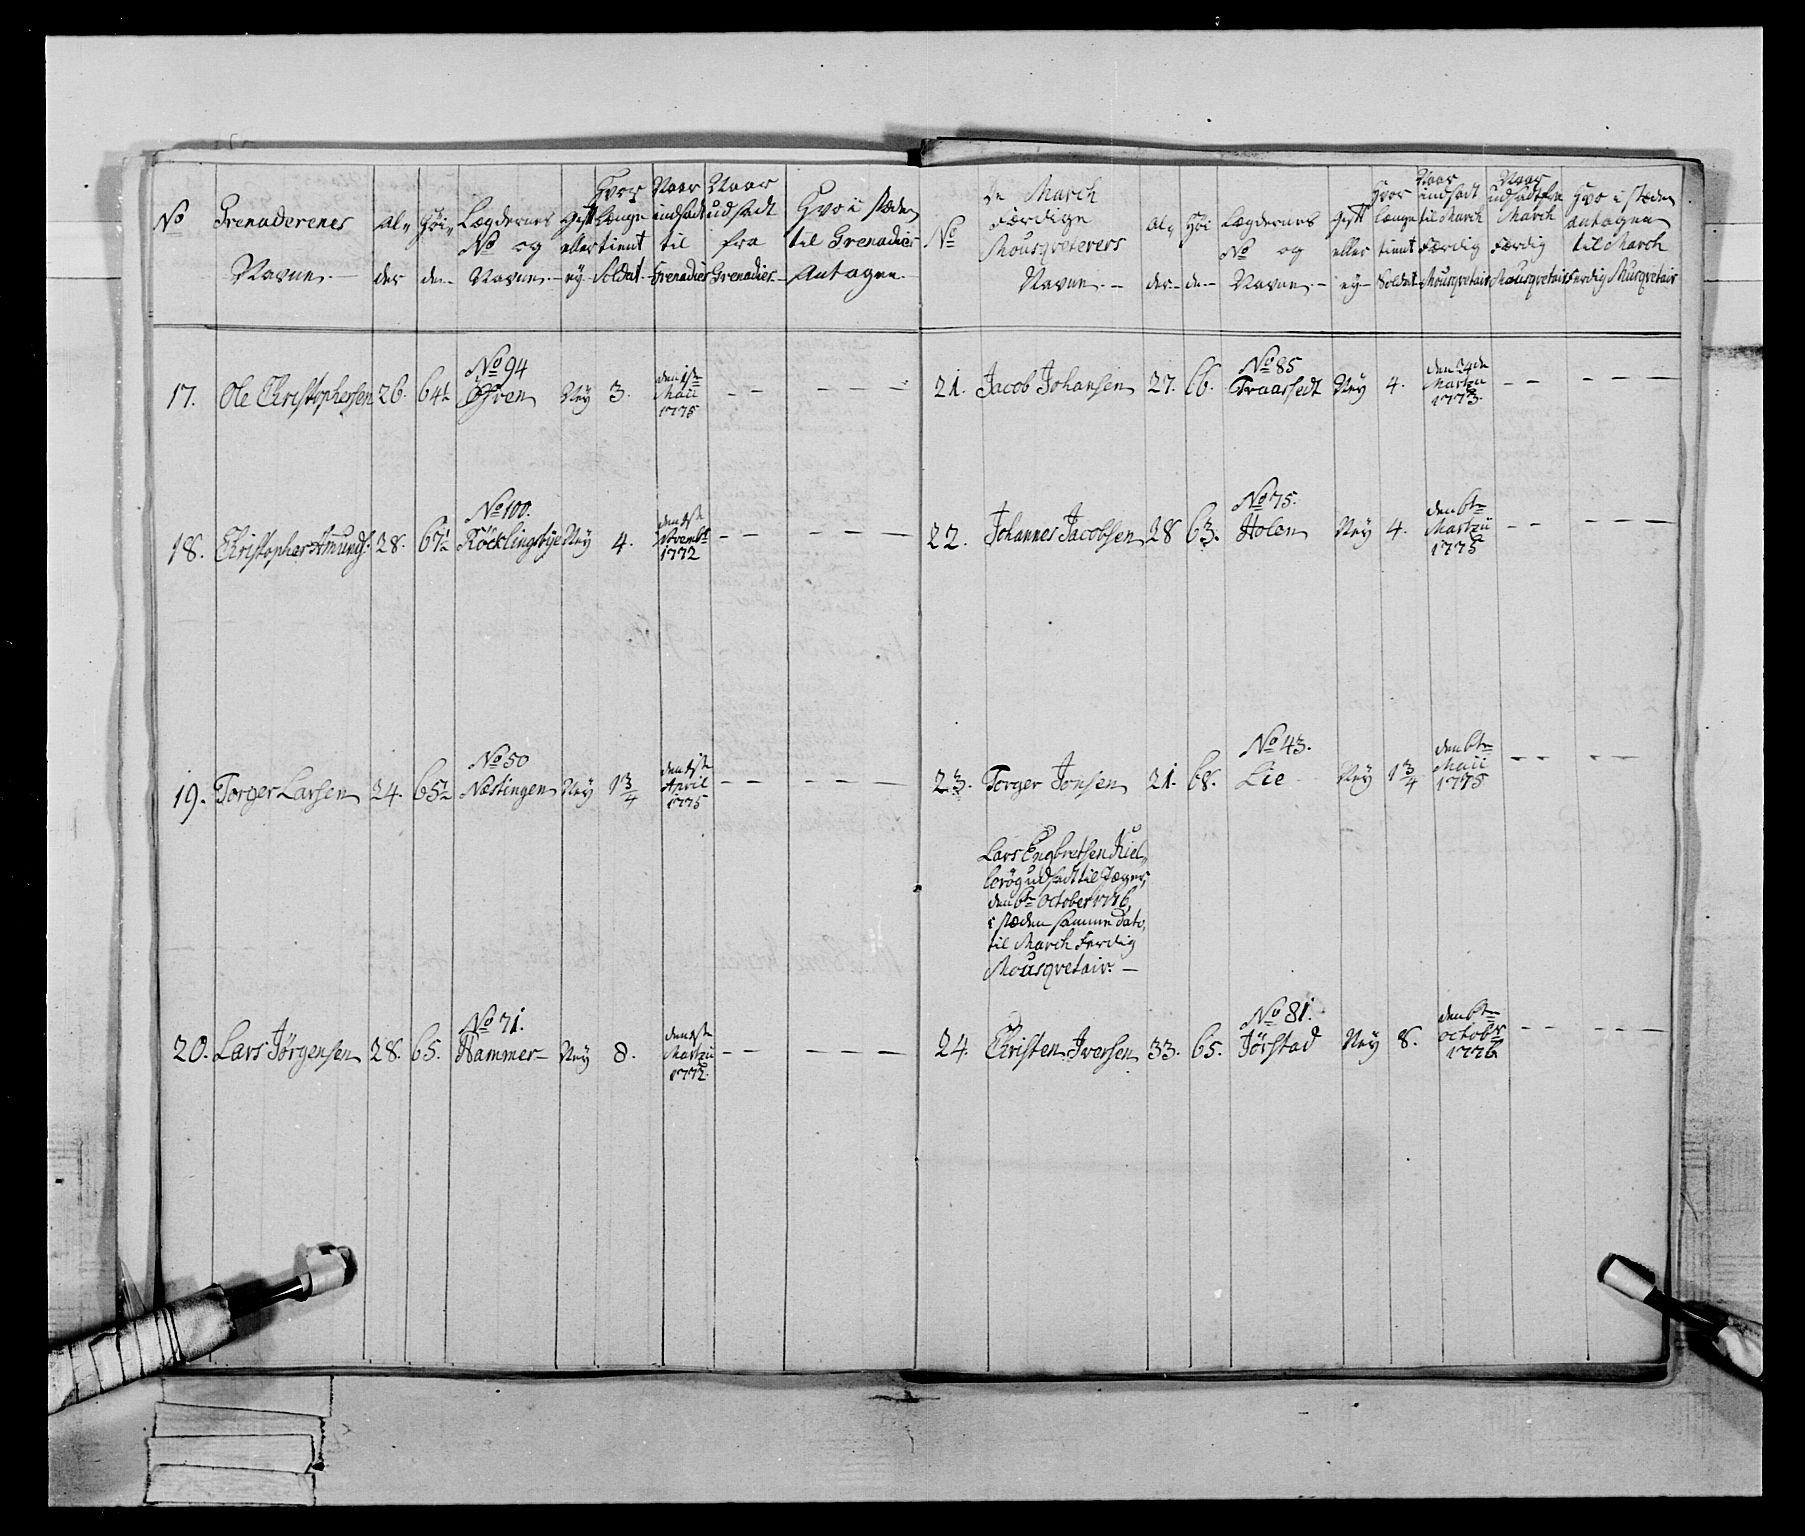 No
Grenaderenes
Navne.
Al„
der
Høi„
de
Lægdernes
No og
Navne.
Gift
eller
ey
Hvor
Længe
tient
Soldat
Naar
indsadt
til
Grenadier
Naar
udsadt
fra
Grenadier
Hvo i stæden
til Grenadier
Antagen
17. Ole Christophersen 26. 64½ No 94 Øfren Ney 3. den 1ste Maii 1775 — — — — —
18. Christopher Amunds. 28. 67½ No 100. Röcklingsbye Ney 4. den 1ste Novembr 1772 — — — — —
19. Torger Larsen 24. 65½ No 50 Næstingen Ney 1¾ den 1ste April 1775 — — — — —
20. Lars Jörgensen 28. 65. No 71. Hammer Ney 8. den 1ste Martzii 1772. — — — — —
No
De March
Færdige
Mousqveterers
Navne.
Al„
der
Høi
de
Lægdernes
No og
Navne.
Gift
eller
ey
Hvor
Længe
tient
Soldat
Naar
indsadt
til March
Færdig
Mousqvetair
Naar
udsadt fra
March
Færdig
Mousqvetair
Hvo i stæden
antagen
til March
Ferdig Musqvetair
21. Jacob Johansen 27. 66. No 85 Traasedt Ney 4. den 24de Martzii 1773. — — — — —
22. Johannes Jacobsen 28 63. No 75. Holen Ney 4. den 6te Martzii 1775 — — — — —
23. Torger Jonsen 21. 68. No 43. Lie Ney 1¾ den 6te Maii 1775 — — — —
Lars Engbretsen Kiel„
udsadt til Jæger,
den 6te October 1776,
i stæden samme dato,
til March Ferdig
Mousqvetair. —
24. Christen Iversen 33. 65. No 81. Jörstad Ney 8. den 6te octobr 1776. — — — — —